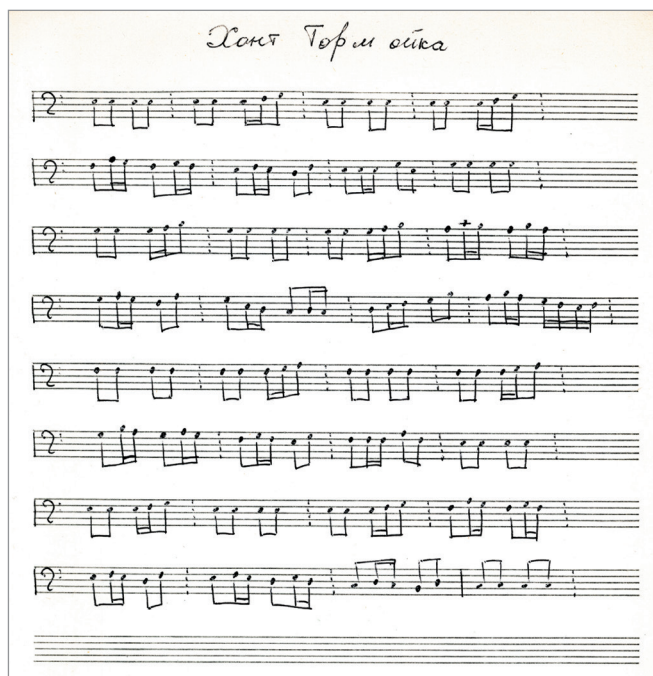 Хонт Торм ойка